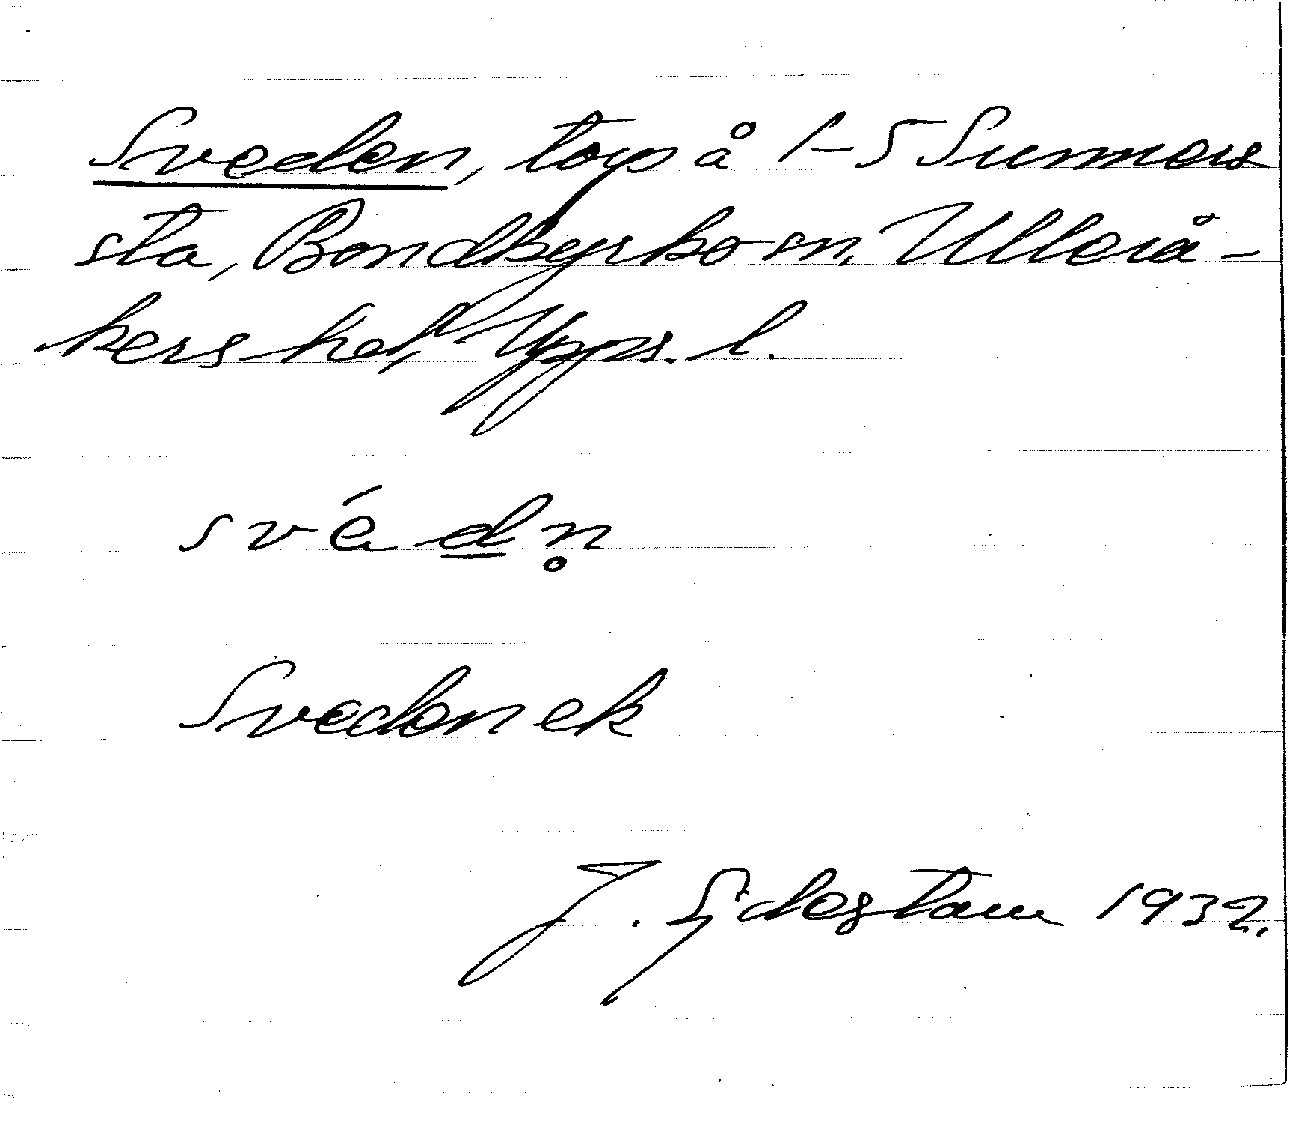 Sveden, torp å 1-5 Sunners
sta, Bondkyrko sn, Ullerå-
kers hd, Upps. l.
své̱dn̥
Sveden ek
J. Sjdestam 1932.